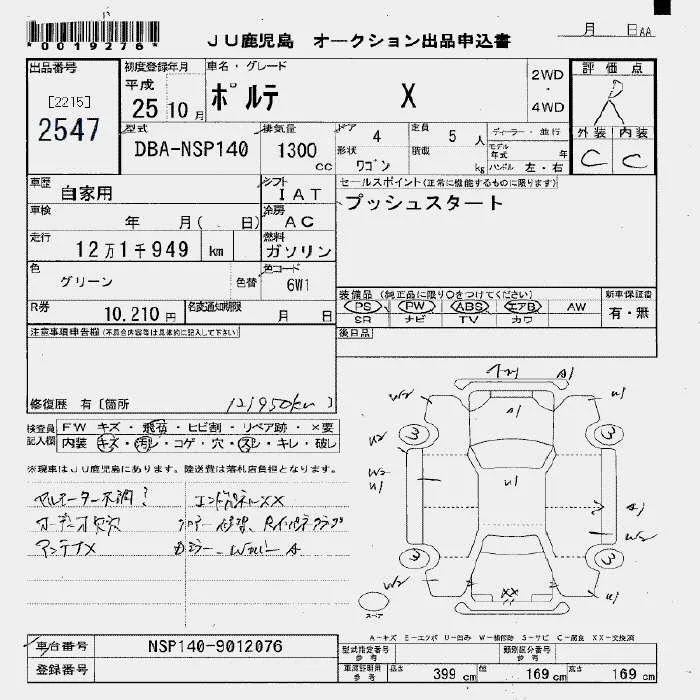 *0019276*
JU鹿児島 オークション出品申込書
月 日AA
出品番号
[2215]
2547
初度登録年月
平成
25 10月
車名・グレード
ポルテ X
2WD
・
4WD
評価点
R
外装 内装
C C
型式
DBA-NSP140
排気量
1300 cc
ドア 4
定員 5 人
形状 ワゴン
積載 kg
ディーラー・並行
モデル年式 年
ハンドル 左・右
車歴
自家用
シフト
IAT
セールスポイント(正常に機能するものに限ります)
プッシュスタート
車検
年 月( 日)
冷房
AC
走行
12万1千949 km
燃料
ガソリン
色
グリーン
色替
色コード
6W1
R券
10,210円
名変通知期限
月 日
装備品 (純正品に限り○をつけてください)
PS PW ABS エアB AW
SR ナビ TV カワ
新車保証書
有・無
注意事項申告欄(不具合内容等は具体的に記入して下さい)
後日品
修復歴 有〔箇所
121950km 〕
検査員
記入欄
FW キズ・飛石・ヒビ割・リペア跡・×要
内装 キズ・汚レ・コゲ・穴・スレ・キレ・破レ
※現車はJU鹿児島にあります。陸送費は落札店負担となります。
オーディオ欠
アンテナX
W2 A1 U1
A1
3 3
U2 W2
W2
U1 U1 A1
W2
3 3
W2 XX U1
スペア
A-キズ E-エクボ U-凹み W-補修跡 S-サビ C-腐食 XX-交換済
車台番号 NSP140-9012076
登録番号
型式指定番号
参考
類別区分番号
参考
車庫証明用
参考
長さ 399 cm 幅 169 cm 高さ 169 cm